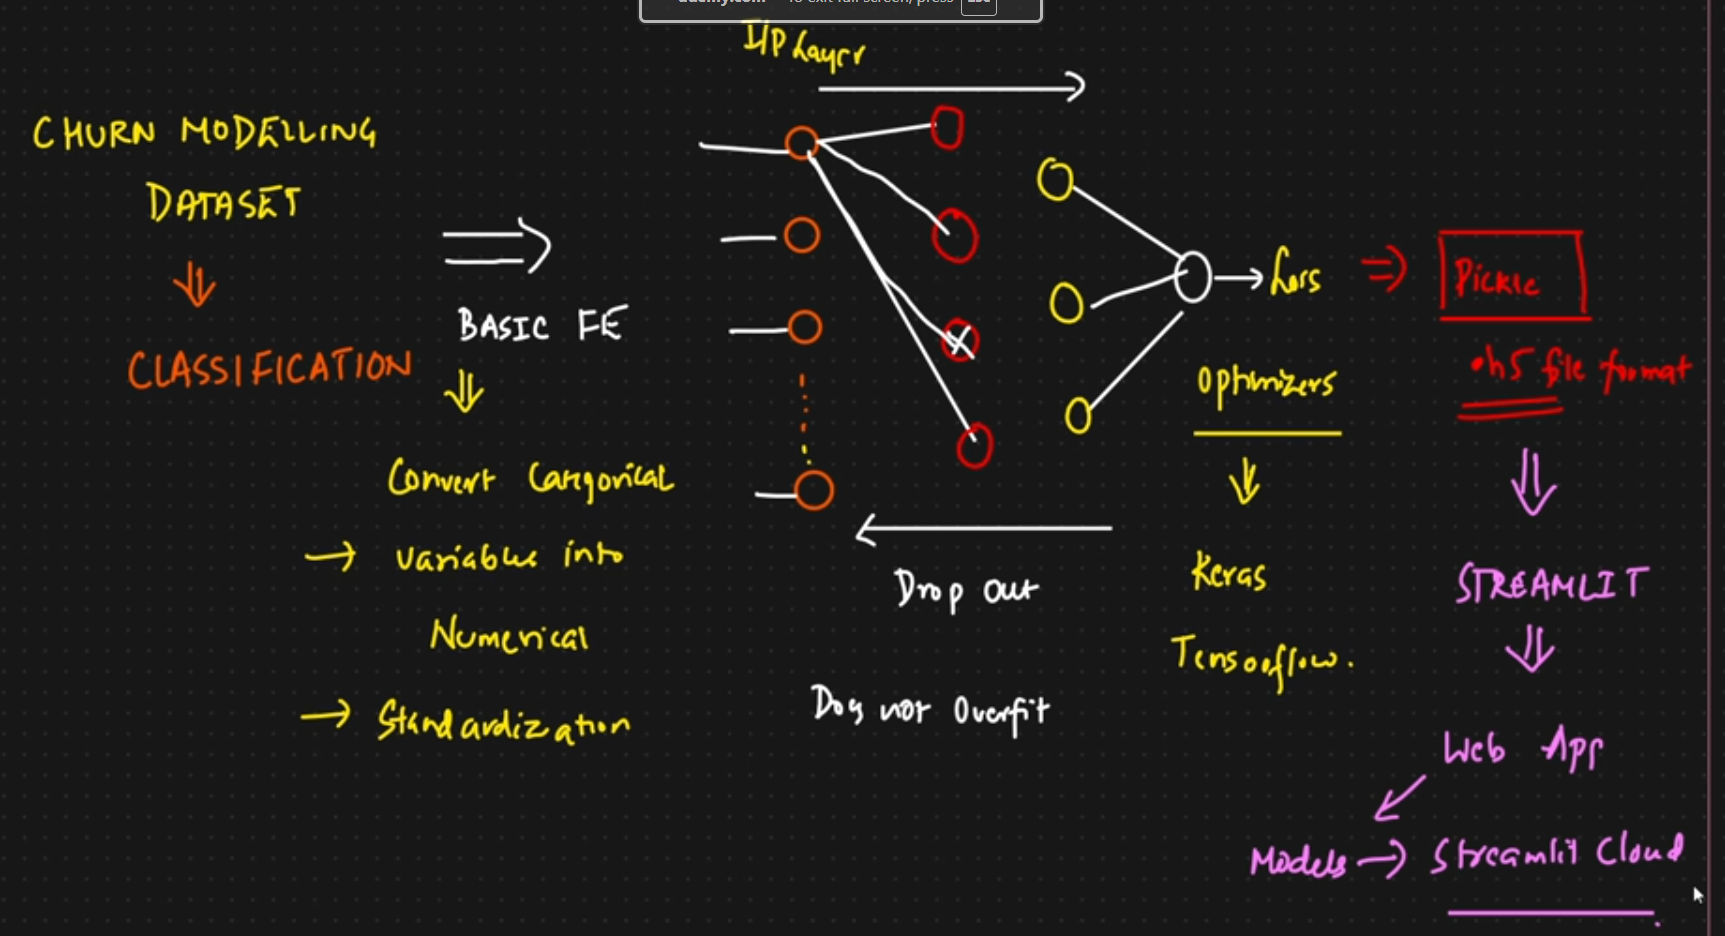 I/P Layer
CHURN MODELLING
DATASET
CLASSIFICATION
BASIC FE
Convert Categorical
→ variables into
Numerical
→ Standardization
Drop out
Does not Overfit
→ Loss
Optimizers
Keras
Tensorflow.
Pickle
.h5 file format
STREAMLIT
Web App
Models → Streamlit Cloud